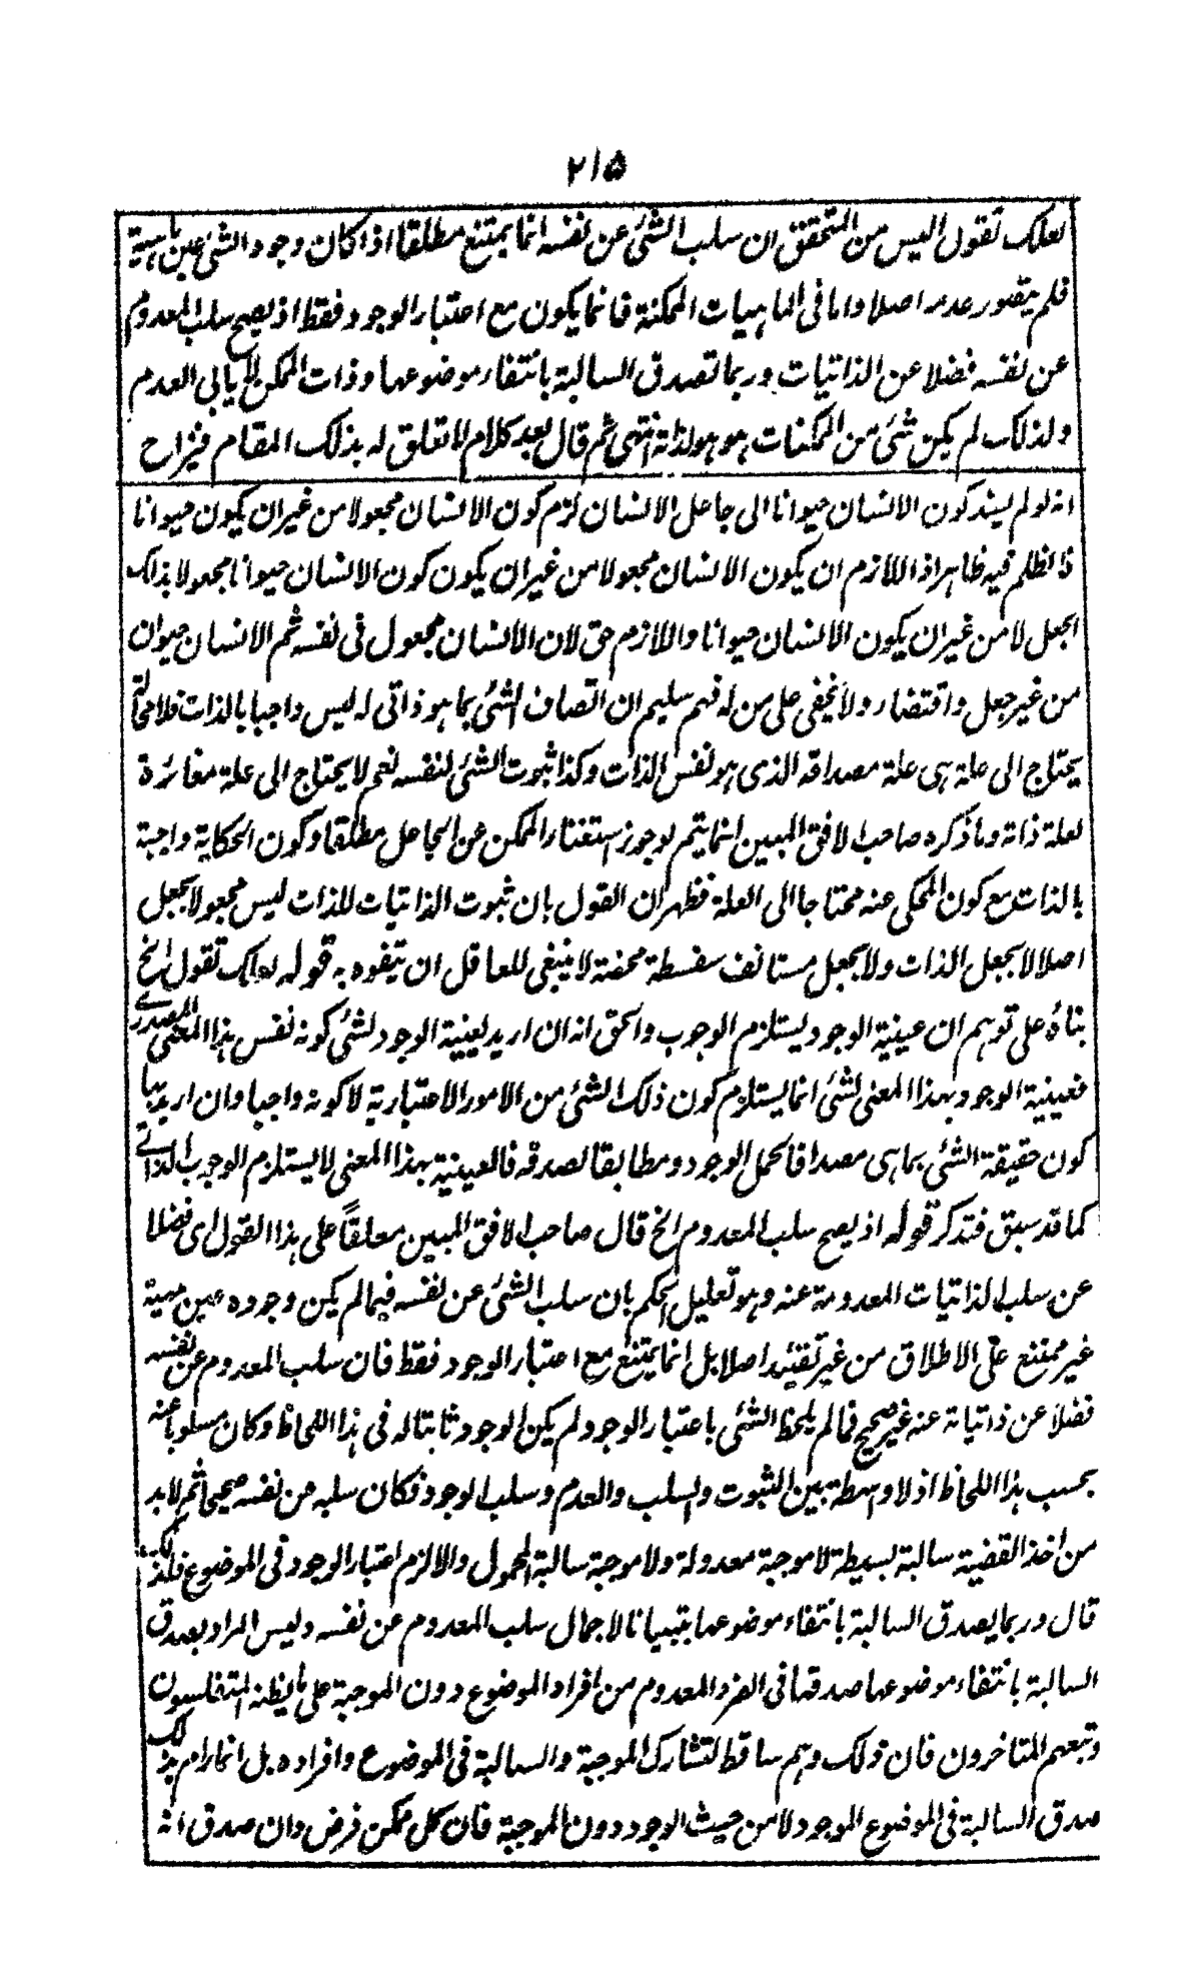 ۲۱۵
لعلک تقول الیس من المتحقق ان سلب الشئ عن نفسه انما یمتنع مطلقا اذا کان وجود الشئ عین ماهیة
فلم یتصور عدمه اصلا واما فی الماهیات الممکنة فانما یکون مع اعتبار الوجود فقط اذ یصح سلب المعدوم
عن نفسه فضلا عن الذاتیات وربما تصدق السالبة بانتفاء موضوعها وذات الممکن لا یابی العدم
ولذلک لم یکن شئ من الممکنات هو هو لذاته انتهی ثم قال بعد کلام لا تعلق له بذلک المقام فیزاح
انه لو لم یستند کون الانسان حیوانا الی جاعل الانسان لزم کون الانسان مجعولا من غیر ان یکون حیوانا
فالظلم فیه ظاهر اذ اللازم ان یکون الانسان مجعولا من غیر ان یکون کون الانسان حیوانا مجعولا بذلک
الجعل لا من غیر ان یکون الانسان حیوانا واللازم حق لان الانسان مجعول فی نفسه ثم الانسان حیوان
من غیر جعل واقتضاء ولا یخفی علی من له فهم سلیم ان اتصاف الشئ بما هو ذاتی له لیس واجبا بالذات فلا محالة
یحتاج الی علة هی علة مصداقه الذی هو نفس الذات وکذا ثبوت الشئ لنفسه نعم لا یحتاج الی علة مغائرة
لعلة ذاته وما ذکره صاحب الافق المبین انما یتم لو جوز استغناء الممکن عن الجاعل مطلقا وکون الحکایة واجبة
بالذات مع کون المحکی عنه محتاجا الی العلة فظهر ان القول بان ثبوت الذاتیات للذات لیس مجعولا بجعل
اصلا لا بجعل الذات ولا بجعل مستانف سفسطة محضة لا ینبغی للعاقل ان یتفوه به قوله لعلک تقول الخ
بناه علی توهم ان عینیة الوجود یستلزم الوجوب والحق انه ان ارید بعینیة الوجود لشئ کونه نفس هذا المعنی المصدری
فعینیة الوجود بهذا المعنی لشئ انما یستلزم کون ذلک الشئ من الامور الاعتباریة لا کونه واجبا وان ارید بها
کون حقیقة الشئ بما هی مصداقا لحمل الوجود ومطابقا لصدقه فالعینیة بهذا المعنی لا یستلزم الوجوب الذاتی
کما قد سبق فتذکر قوله اذ یصح سلب المعدوم الخ قال صاحب الافق المبین معلقاً علی هذا القول ای فضلا
عن سلب الذاتیات المعدومة عنه وهو تعلیل الحکم بان سلب الشئ عن نفسه فیما لم یکن وجوده عین مهیة
غیر ممتنع علی الاطلاق من غیر تقیید اصلا بل انما یمتنع مع اعتبار الوجود فقط فان سلب المعدوم عن نفسه
فضلا عن ذاتیاته عنه غیر صحیح فما لم یلحظ الشئ باعتبار الوجود لم یکن الوجود ثابتا له فی هذا اللحاظ وکان مسلوبا عنه
بحسب هذا اللحاظ اذ لا واسطة بین الثبوت والسلب والعدم وسلب الوجود فکان سلبه من نفسه صحیحا ثم لا بد
من اخذ القضیة سالبة بسیطة لا موجبة معدولة ولا موجبة سالبة المحمول والا لزم اعتبار الوجود فی الموضوع فلذلک
قال وربما یصدق السالبة بانتفاء موضوعها تبیانا لاجمال سلب المعدوم عن نفسه ولیس المراد بصدق
السالبة بانتفاء موضوعها صدقها فی الفرد المعدوم من افراد الموضوع دون الموجبة علی ما یظنه المتفلسفون
وتبعهم المتاخرون فان ذلک وهم ساقط لتشارک الموجبة والسالبة فی الموضوع وافراده بل انما رام بذلک
صدق السالبة فی الموضوع الموجود لا من حیث الوجود دون الموجبة فان کل ممکن فرض وان صدق انه